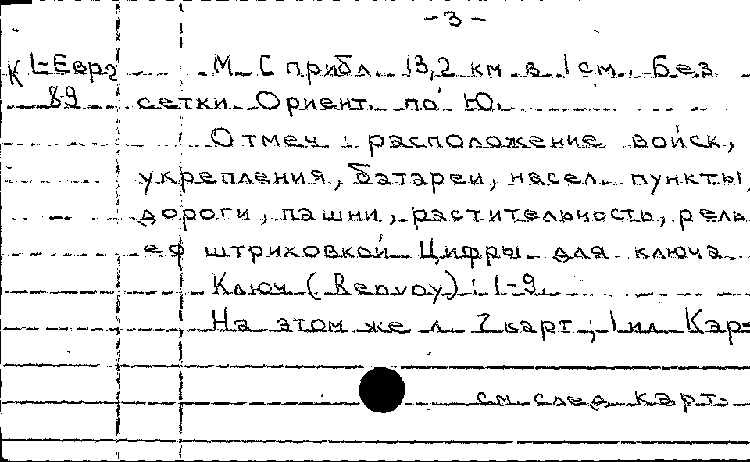 -3-
К 1-Евр2 М С прибл. 13,2 км в 1 см. Без
89 сетки. Ориент. по Ю.
Отмеч.: расположение войск,
укрепления, батареи, насел. пункты,
дороги, пашни, растительность, рель-
еф штриховкой. Цифры для ключа.
Ключ (Renvoy): 1-9.
На этом же л. 7 карт, 1 ил. Кар-
см. след. карт.